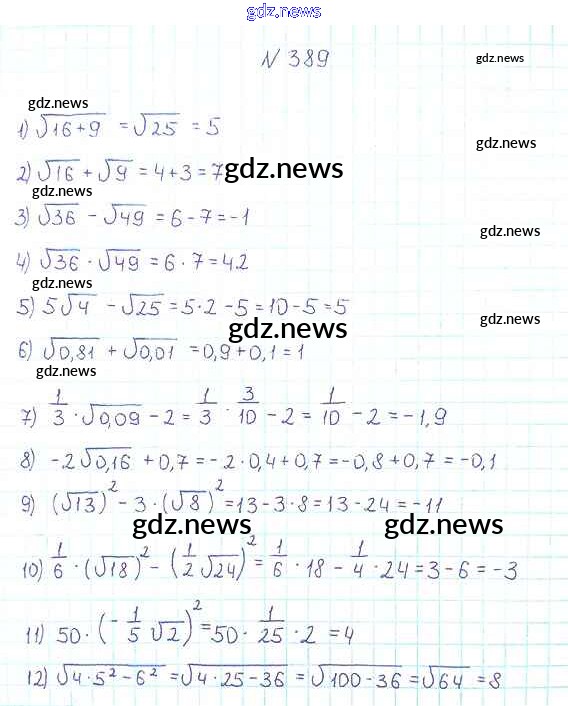 gdz.news
N 389
gdz.news
gdz.news
1) √16+9 = √25 = 5
gdz.news
2) √16 + √9 = 4+3 = 7
gdz.news
gdz.news
3) √36 - √49 = 6-7 = -1
gdz.news
4) √36 · √49 = 6 · 7 = 42
gdz.news
5) 5√4 - √25 = 5·2 - 5 = 10 - 5 = 5
gdz.news
gdz.news
6) √0,81 + √0,01 = 0,9 + 0,1 = 1
gdz.news
7) 1/3 · √0,09 - 2 = 1/3 · 3/10 - 2 = 1/10 - 2 = -1,9
8) -2√0,16 + 0,7 = -2·0,4 + 0,7 = -0,8 + 0,7 = -0,1
9) (√13)² - 3·(√8)² = 13 - 3·8 = 13 - 24 = -11
gdz.news gdz.news
10) 1/6 · (√18)² - (1/2 √24)² = 1/6 · 18 - 1/4 · 24 = 3 - 6 = -3
11) 50 · (-1/5 √2)² = 50 · 1/25 · 2 = 4
12) √4·5² - 6² = √4·25 - 36 = √100 - 36 = √64 = 8